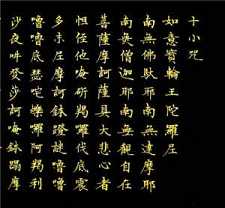 十小咒
如意寶輪王陀羅尼
南無佛馱耶南無達摩耶
南無僧伽耶南無觀自在
菩薩摩訶薩具大悲心者
怛侄他唵羯囉伐底震
多末尼摩訶鉢蹬謎嚕
嚕嚕底瑟咤爍囉阿羯利
沙夜吽發莎訶唵鉢蹋摩